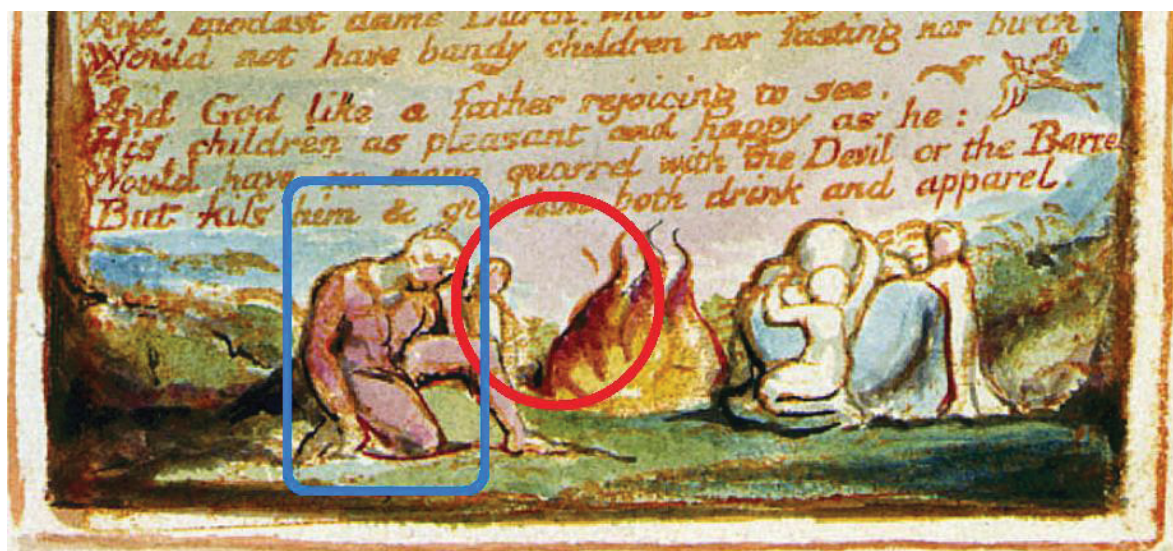 And modest dame Lurch, who is
Would not have bandy children nor fasting nor birch.
And God like a father rejoicing to see,
His children as pleasant and happy as he:
Would have no more quarrel with the Devil or the Barrel
But kiss him & give him both drink and apparel.